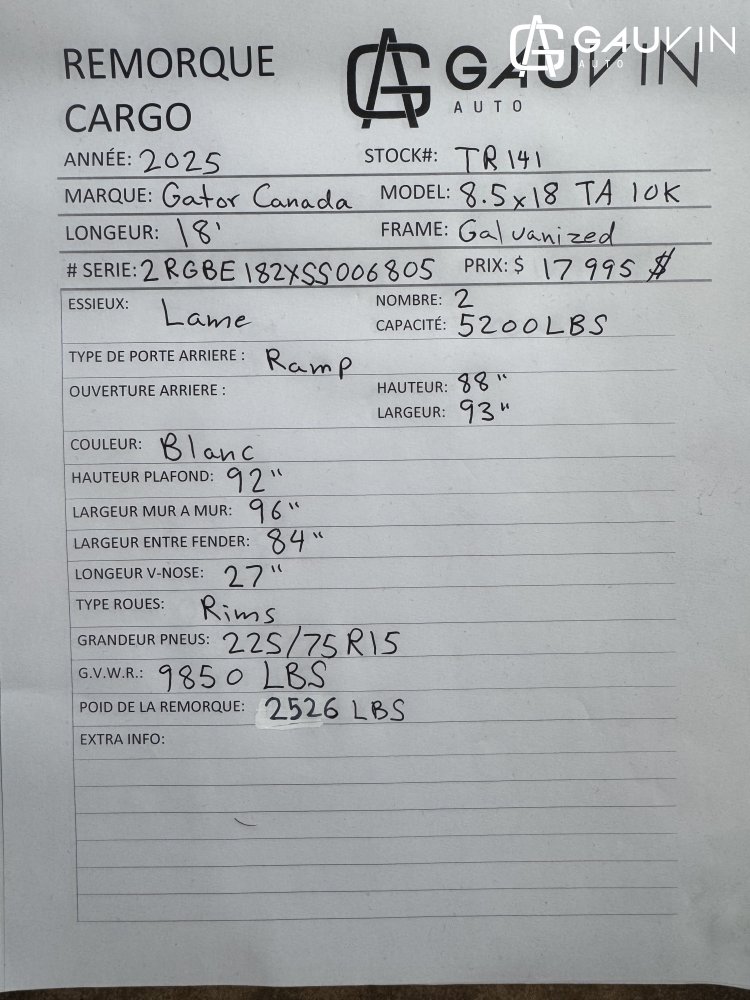 REMORQUE CARGO
GAUVIN AUTO
GAUVIN AUTO
ANNÉE: 2025 STOCK#: TR141
MARQUE: Gator Canada MODEL: 8.5x18 TA 10K
LONGEUR: 18' FRAME: Galvanized
# SERIE: 2RGBE182XSS006805 PRIX: $ 17 995 $
ESSIEUX: Lame NOMBRE: 2
CAPACITÉ: 5200LBS
TYPE DE PORTE ARRIERE : Ramp
OUVERTURE ARRIERE : HAUTEUR: 88"
LARGEUR: 93"
COULEUR: Blanc
HAUTEUR PLAFOND: 92"
LARGEUR MUR A MUR: 96"
LARGEUR ENTRE FENDER: 84"
LONGEUR V-NOSE: 27"
TYPE ROUES: Rims
GRANDEUR PNEUS: 225/75R15
G.V.W.R.: 9850 LBS
POID DE LA REMORQUE: 2526 LBS
EXTRA INFO: